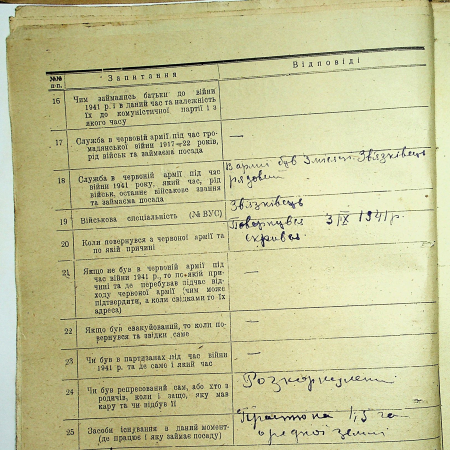 №№ п-п.
Запитання
Відповіді
16
Чим займались батьки до війни
1941 р. і в даний час та належність
їх до комуністичної партії і з
якого часу
—
17
Служба в червоній армії під час гро-
мадянської війни 1917—22 років,
рід військ та займаєма посада
—
18
Служба в червоній армії під час
війни 1941 року, який час, рід
військ, останнє військове звання
та займаєма посада
В армії був 3 місяці. Звязківець
рядовий
19
Військова спеціальність (№ ВУС)
Звязківець
20
Коли повернувся з червоної армії та
по якій причині
Повернувся 3/IX 1941 р.
21
Якщо не був в червоній армії під
час війни 1941 р., то по якій при-
чині та де перебував підчас від-
ходу червоної армії (чим може
підтвердити, а коли свідками то їх
адреса)
—
22
Якщо був евакуйований, то коли по-
вернувся та звідки саме
—
23
Чи був в партизанах під час війни
1941 р. та де саме і який час
—
24
Чи був репресований сам, або хто з
родичів, коли і защо, яку мав
кару та чи відбув її
Розкуркулені
25
Засоби існування в даний момент
(де працює і яку займає посаду)
1,5 га
землі